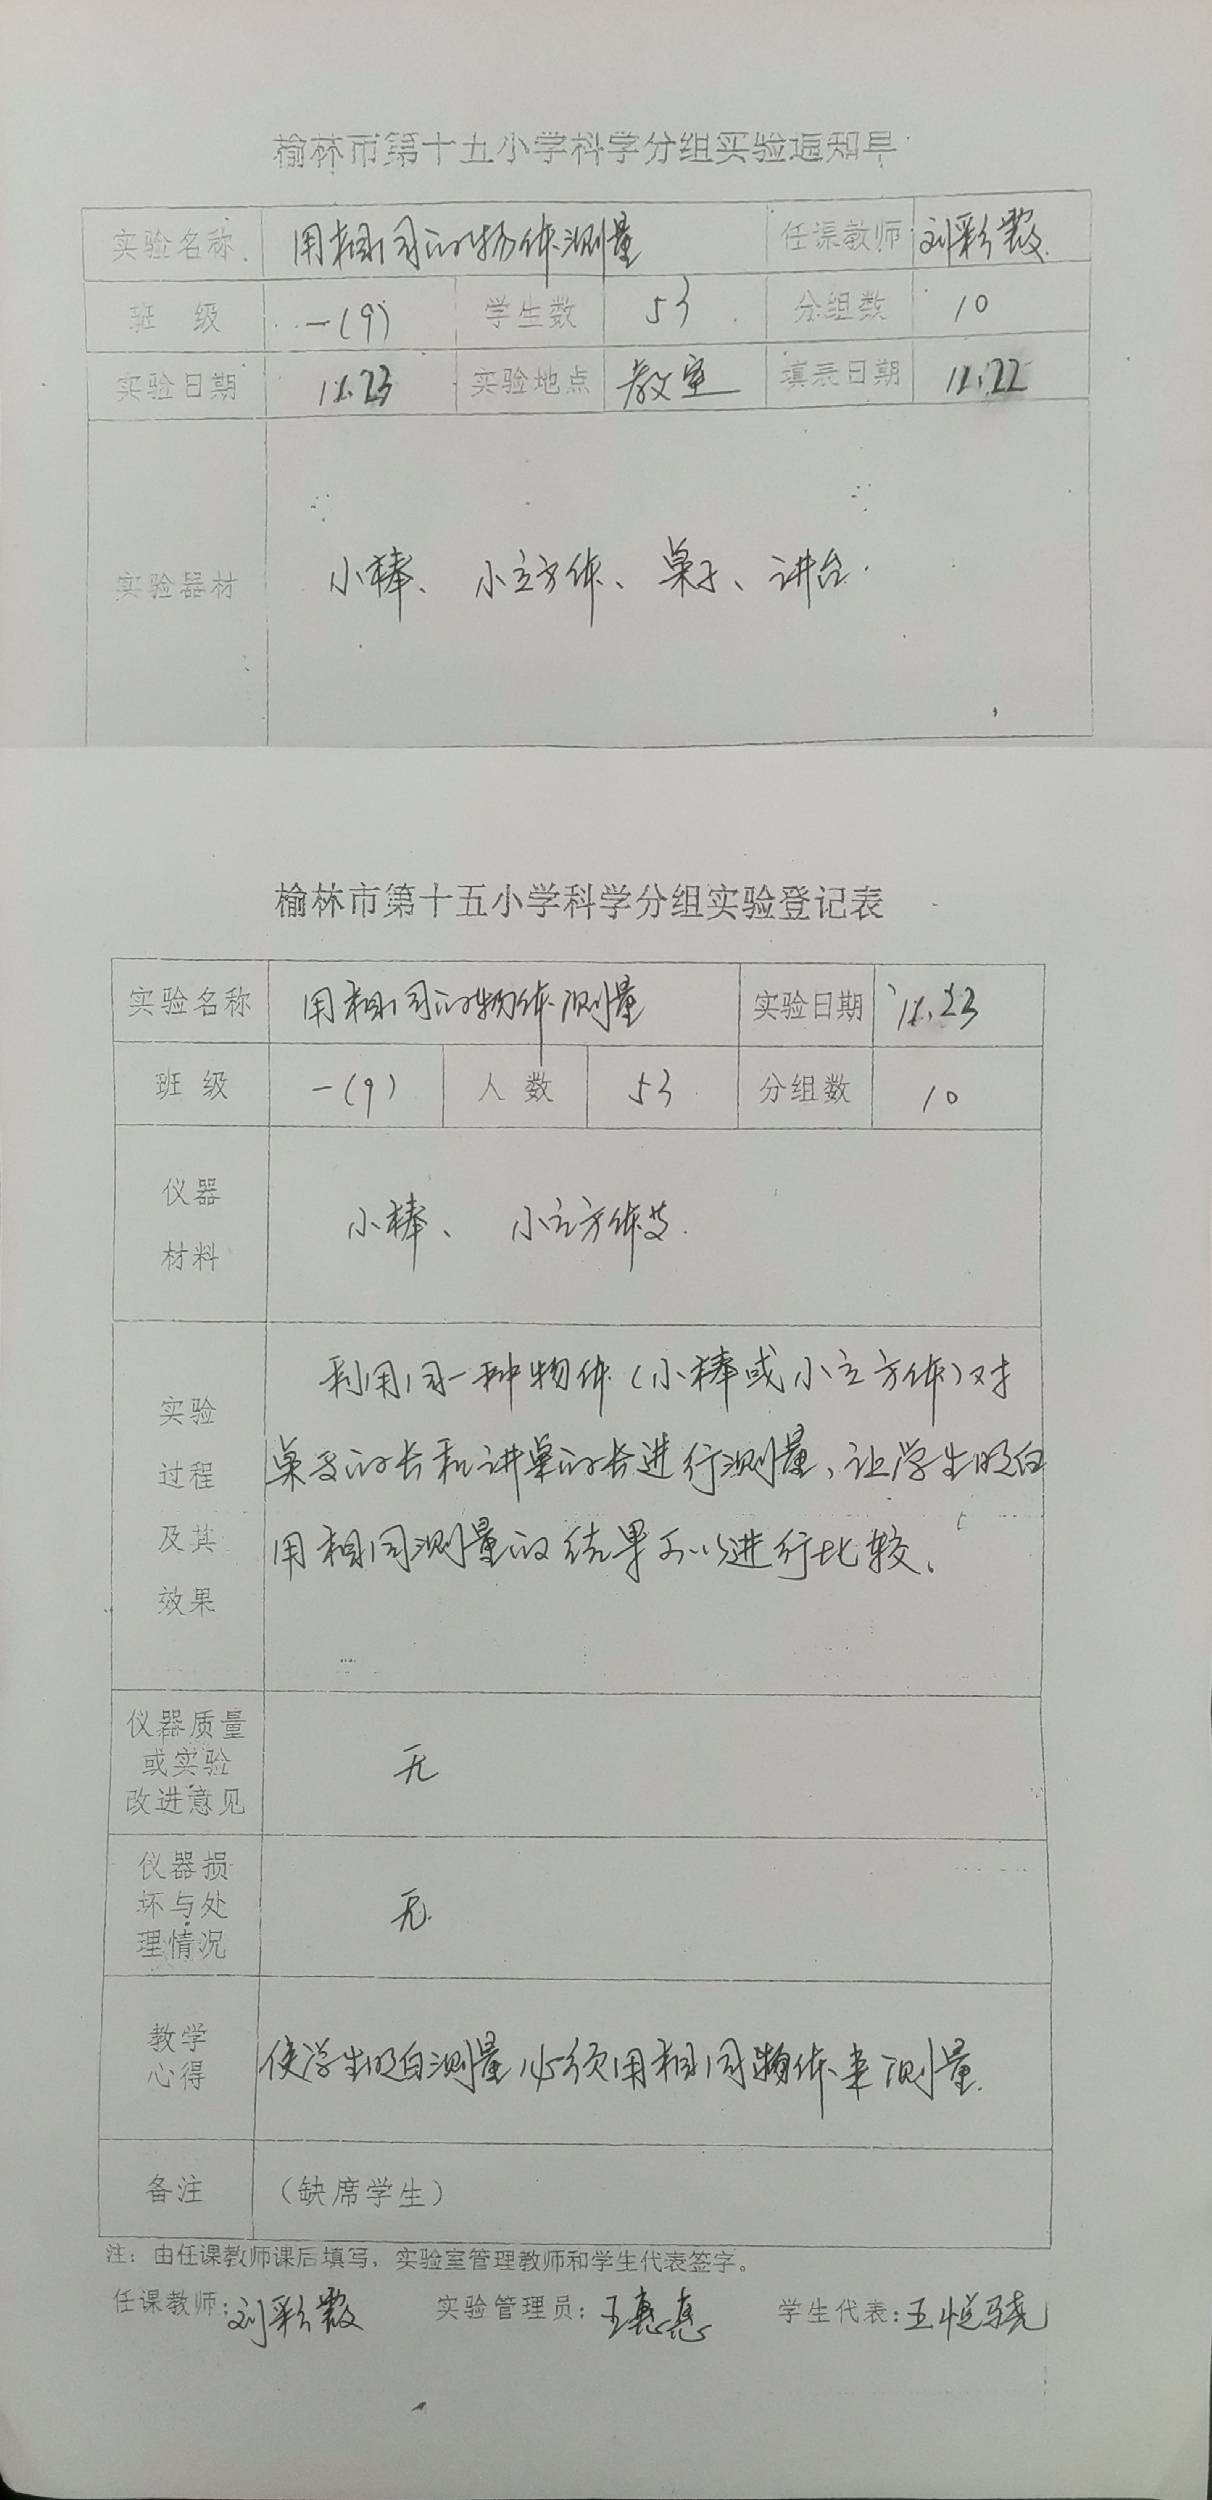 榆林市第十五小学科学分组实验通知单
实验名称 用相同的物体测量 任课教师 刘彩霞
班 级 一(9) 学生数 53 分组数 10
实验日期 11.23 实验地点 教室 填表日期 11.22
实验器材 小棒、小立方体、桌子、讲台.
榆林市第十五小学科学分组实验登记表
实验名称 用相同的物体测量 实验日期 11.23
班 级 一(9) 人 数 53 分组数 10
仪器
材料
小棒、 小立方体等.
实验
过程
及其
效果
利用同一种物体(小棒或小立方体)对
桌子的长和讲桌的长进行测量,让学生明白
用相同测量的结果可以进行比较.
仪器质量
或实验
改进意见
无
仪器损
坏与处
理情况
无.
教学
心得
使学生明白测量必须用相同物体来测量.
备注 (缺席学生)
注:由任课教师课后填写,实验室管理教师和学生代表签字。
任课教师:刘彩霞 实验管理员:王惠惠 学生代表:王悦骁